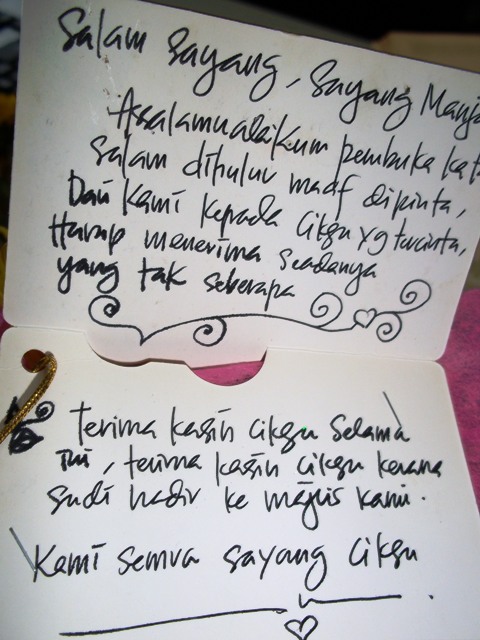 Salam Sayang, Sayang Manja
Assalamualaikum pembuka kata
Salam dihulur maaf dipinta,
Dari Kami kepada Cikgu yg tercinta,
Harap menerima Seadanya
yang tak seberapa
terima kasih cikgu Selama
ini, terima kasih cikgu kerana
sudi hadir ke majlis kami.
Kami semua sayang Cikgu